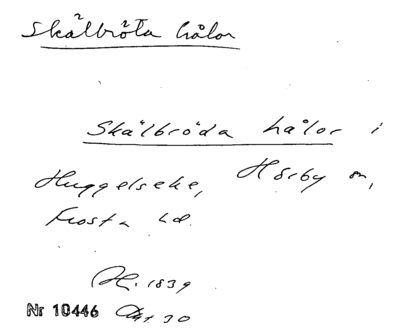 Skälbröta hålor
Skälbröda hålor i
Huggelseke, Hörby sn,
Frosta hd.
H. 1839
Nr 10446 Akt 30